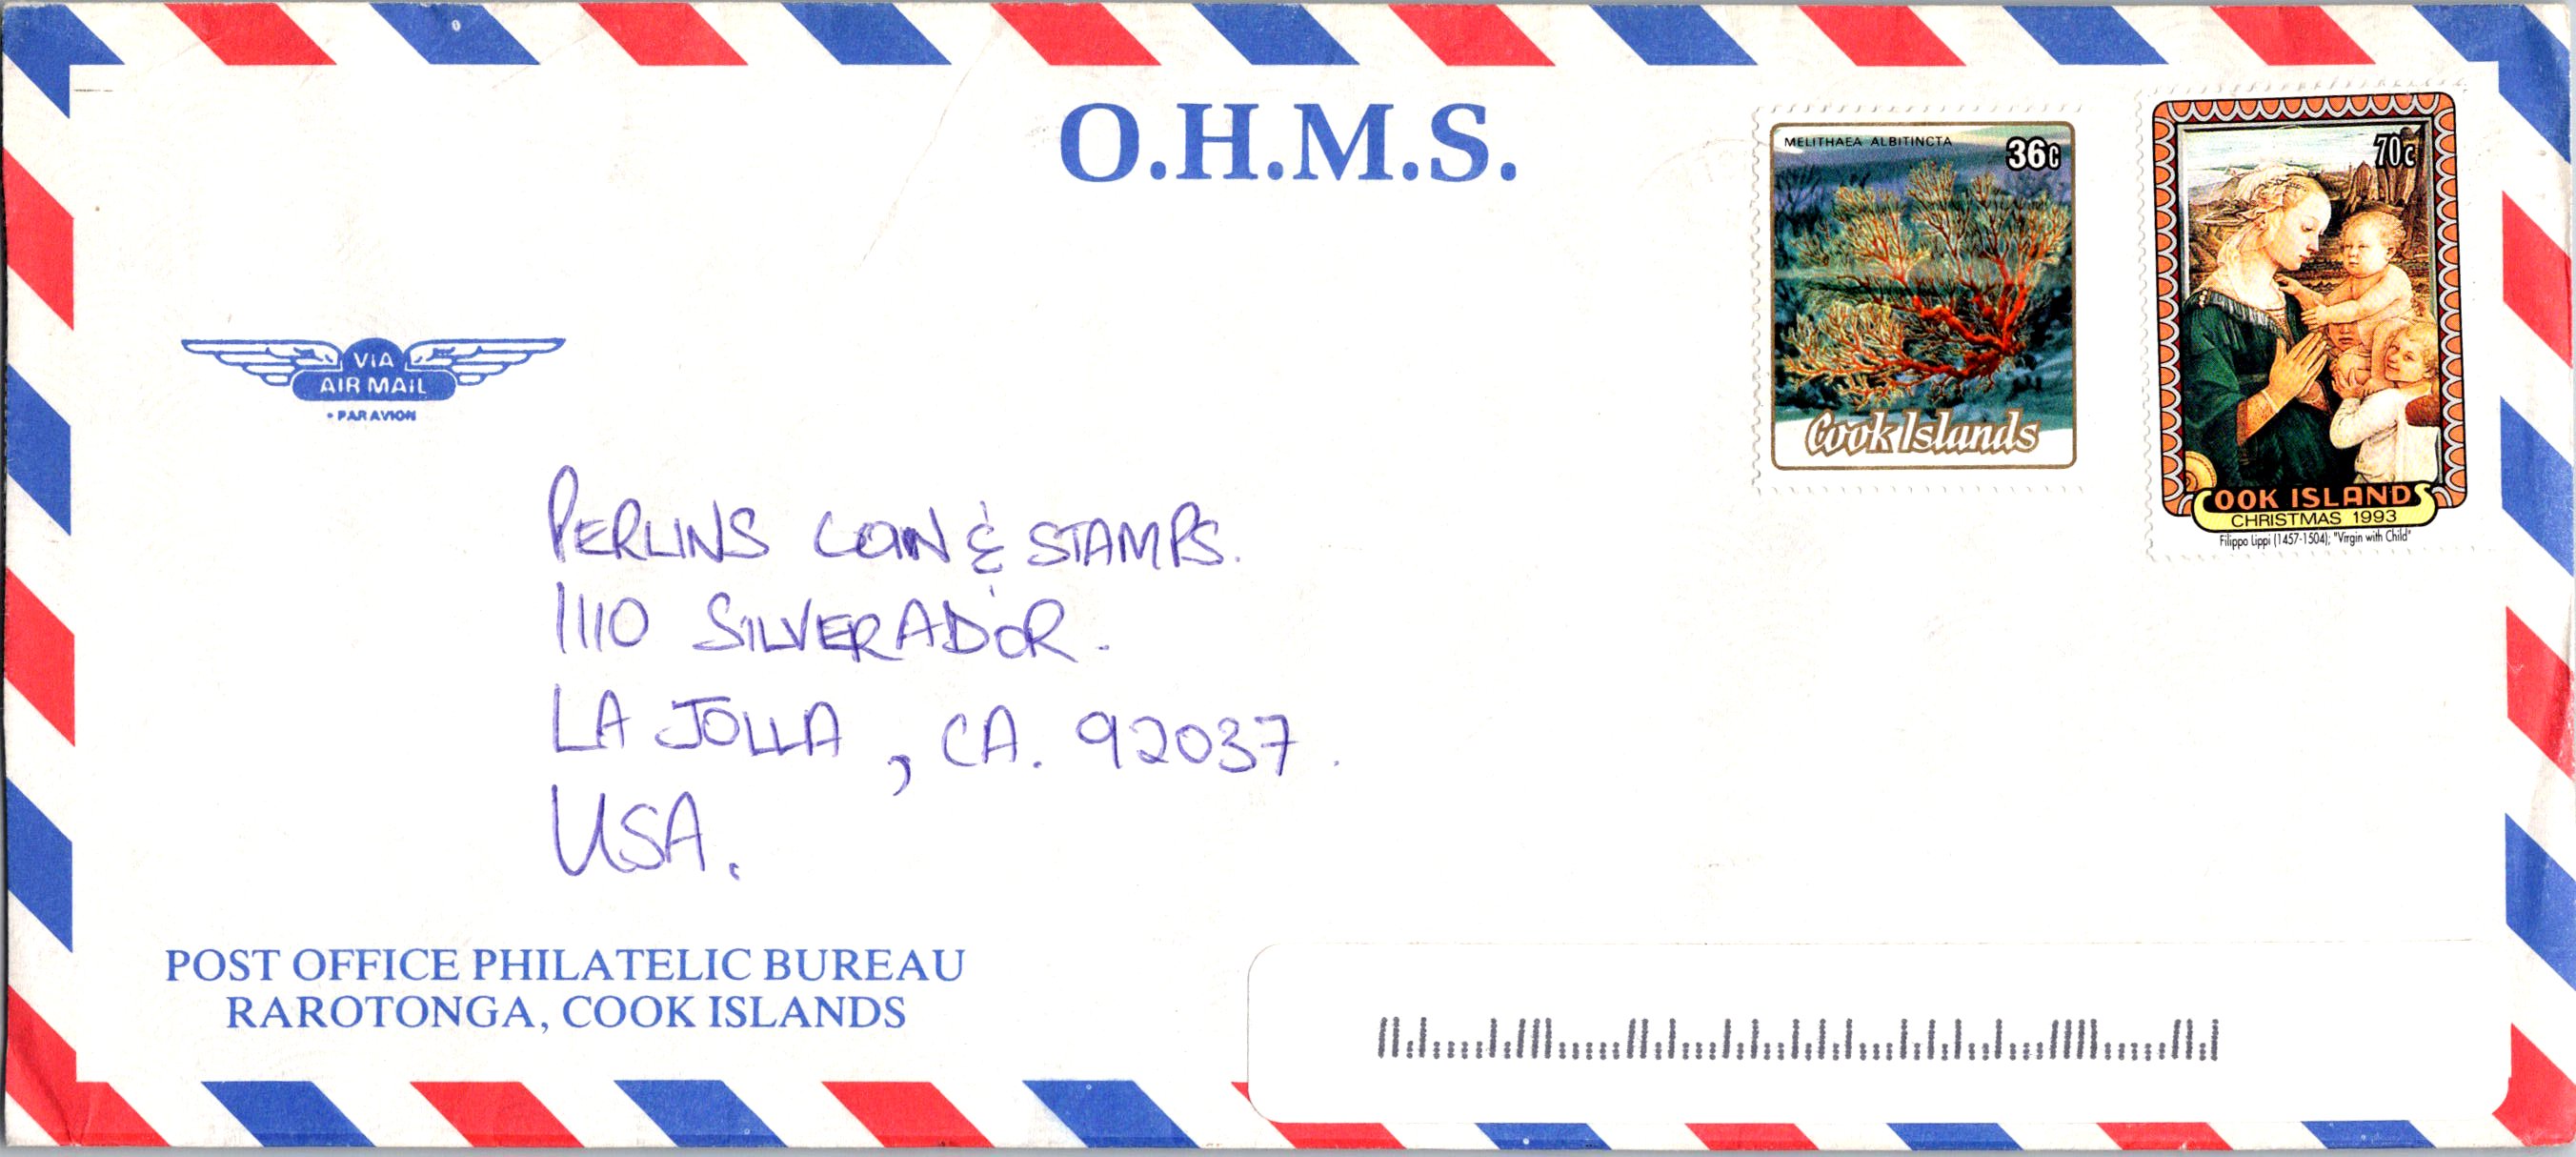 O.H.M.S.
MELITHAEA ALBITINCTA
36c
Cook Islands
70c
COOK ISLANDS
CHRISTMAS 1993
Filippo Lippi (1457-1504); "Virgin with Child"
VIA
AIR MAIL
• PAR AVION
PERLINS COIN & STAMPS.
1110 SILVERADOR.
LA JOLLA, CA. 92037.
USA.
POST OFFICE PHILATELIC BUREAU
RAROTONGA, COOK ISLANDS